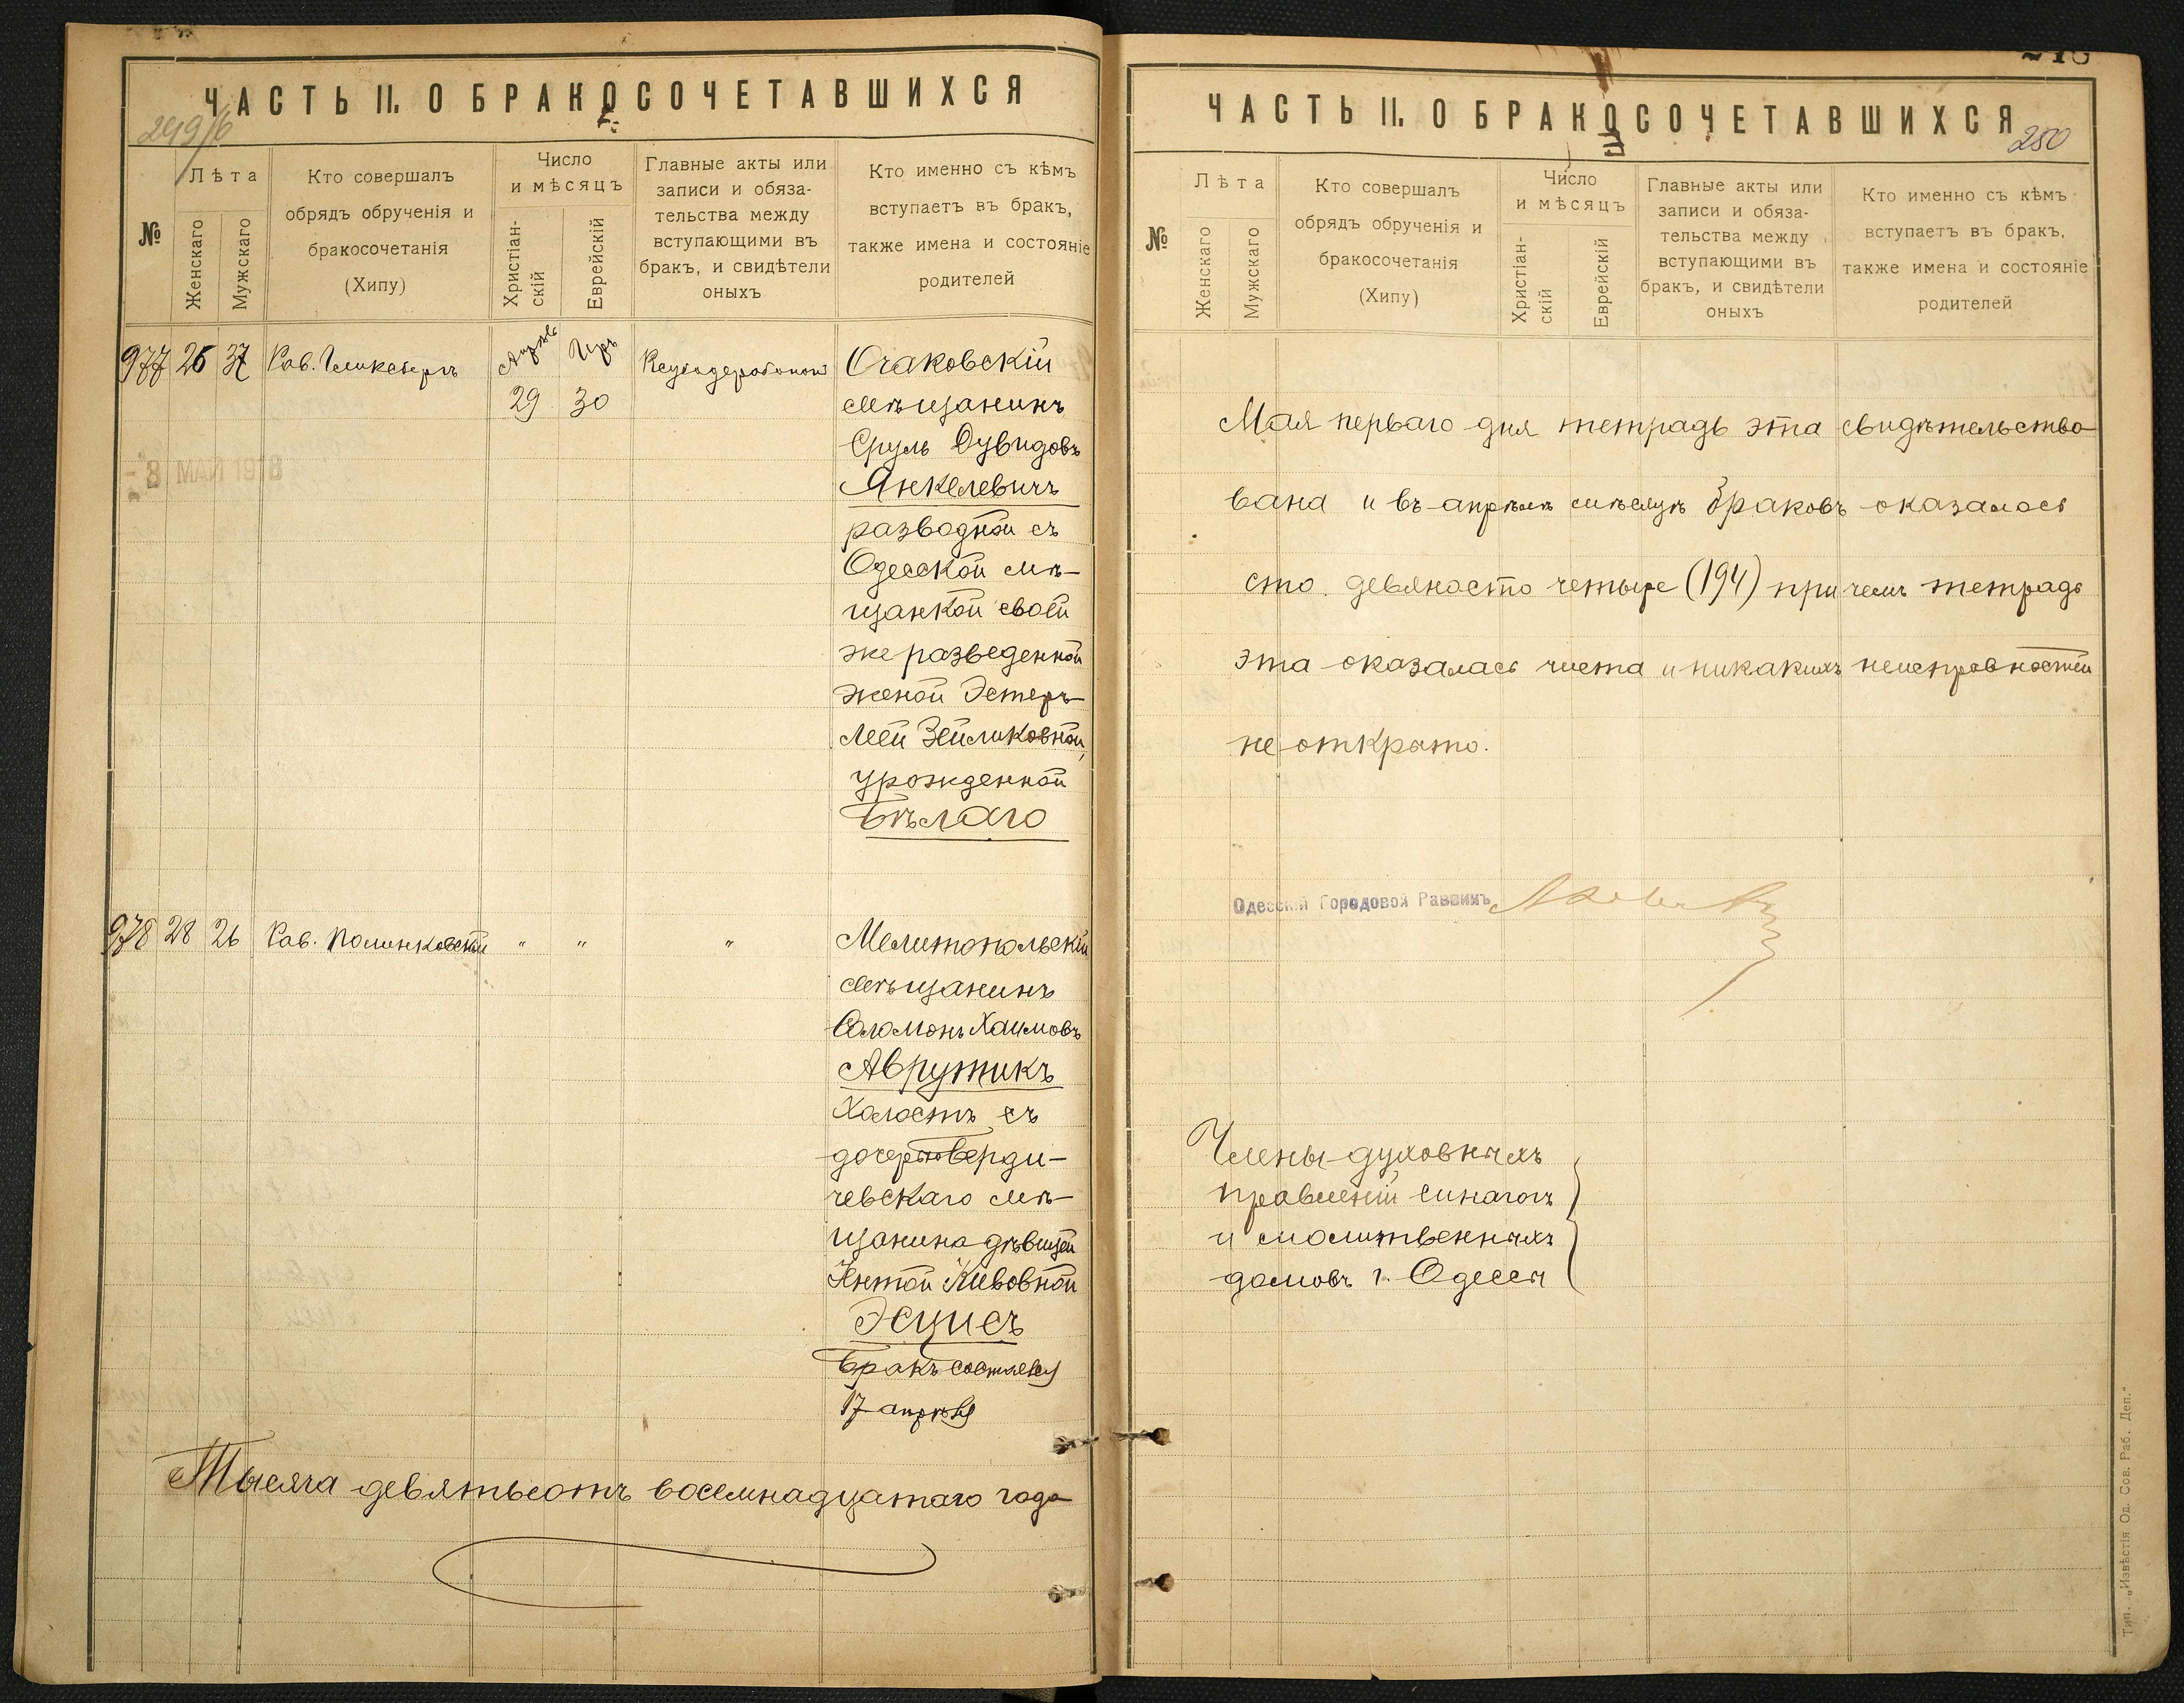 ЧАСТЬ II. О БРАКОСОЧЕТАВШИХСЯ
249/б
№
Лѣта
Женскаго
Мужскаго
Кто совершалъ
обрядъ обрученія и
бракосочетанія
(Хипу)
Число
и мѣсяцъ
Христіан-
скій
Еврейскій
Главные акты или
записи и обяза-
тельства между
вступающими въ
бракъ, и свидѣтели
оныхъ
Кто именно съ кѣмъ
вступаетъ въ бракъ,
также имена и состояніе
родителей
977 26 37 Рав. Гликсбергъ
Апрѣль Иръ
29 30
8 МАЙ 1918
Очаковскій
мѣщанинъ
Сруль Дувидовъ
Янкелевичъ
разводной съ
Одесской мѣ-
щанкой своей
же разведенной
женой Эстеръ-
Леей Зейликовной,
урожденной
Бѣлаго
978 28 26 Рав. Полинковскій " " "
Мелитопольскій
мѣщанинъ
Соломонъ Хаимовъ
Аврутикъ
Холостъ съ
дочерью Берди-
чевскаго мѣ-
щанина дѣвицей
Кивовной
Бракъ состоялся
17 апрѣля
Тысяча девятьсотъ восемнадцатаго года
ЧАСТЬ II. О БРАКОСОЧЕТАВШИХСЯ
250
№
Лѣта
Женскаго
Мужскаго
Кто совершалъ
обрядъ обрученія и
бракосочетанія
(Хипу)
Число
и мѣсяцъ
Христіан-
скій
Еврейскій
Главные акты или
записи и обяза-
тельства между
вступающими въ
бракъ, и свидѣтели
оныхъ
Кто именно съ кѣмъ
вступаетъ въ бракъ,
также имена и состояніе
родителей
Мая перваго дня тетрадь эта свидѣтельство-
вана и въ апрѣлѣ мѣсяцѣ браковъ оказалось
сто девяносто четыре (194) причемъ тетрадь
эта оказалась чиста и никакихъ неисправностей
не открыто.
Одесскій Городовой Раввинъ
Члены духовныхъ
правленій синагогъ
и молитвенныхъ
домовъ г. Одессы
Тип. „Извѣстія Од. Сов. Раб. Деп."